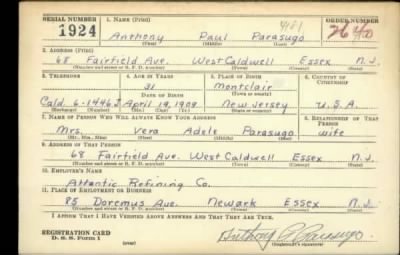 SERIAL NUMBER 1. NAME (Print) ORDER NUMBER
1924 Anthony Paul Parasugo
(First) (Middle) (Last)
2. ADDRESS (Print)
68 Fairfield Ave. West Caldwell Essex N.J.
(Number and street or R. F. D. number) (Town) (County) (State)
3. TELEPHONE 4. AGE IN YEARS 5. PLACE OF BIRTH 6. COUNTRY OF CITIZENSHIP
31 Montclair
DATE OF BIRTH (Town or county)
Cald. 6-1446 J April 19, 1909 New Jersey U.S.A.
(Exchange) (Number) (Mo.) (Day) (Yr.) (State or country)
7. NAME OF PERSON WHO WILL ALWAYS KNOW YOUR ADDRESS 8. RELATIONSHIP OF THAT PERSON
Mrs. Vera Adele Parasugo wife
(Mr., Mrs., Miss) (First) (Middle) (Last)
9. ADDRESS OF THAT PERSON
68 Fairfield Ave. West Caldwell Essex N.J.
(Number and street or R. F. D. number) (Town) (County) (State)
10. EMPLOYER'S NAME
Atlantic Refining Co.
11. PLACE OF EMPLOYMENT OR BUSINESS
85 Doremus Ave. Newark Essex N.J.
(Number and street or R. F. D. number) (Town) (County) (State)
I AFFIRM THAT I HAVE VERIFIED ABOVE ANSWERS AND THAT THEY ARE TRUE.
REGISTRATION CARD
D. S. S. Form 1 (over) Anthony P. Parasugo
(Registrant's signature)